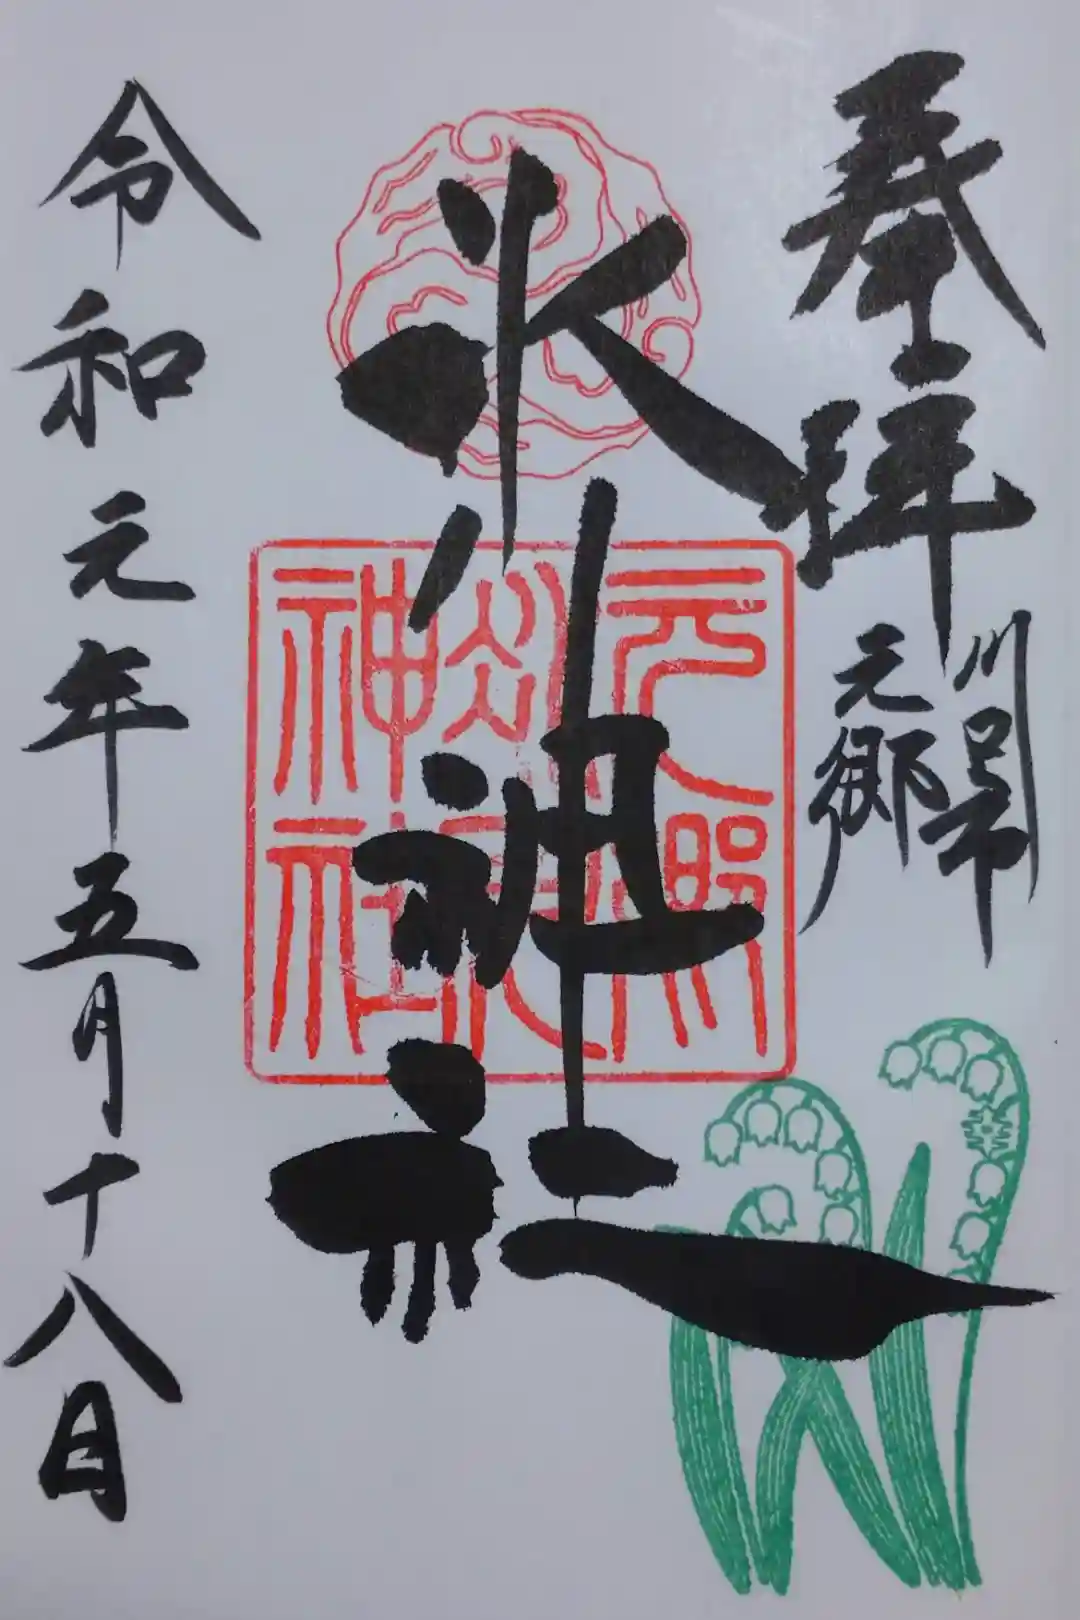 奉拝
川口市
元郷
氷川神社
元郷
氷川
神社
令和元年五月十八日